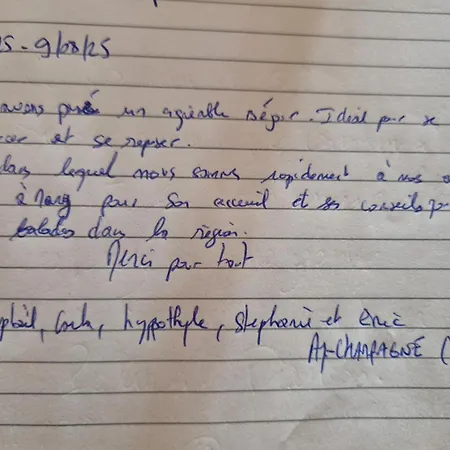 5 - 9/08/25
avons passé un agréable séjour. Idéal pour se
et se reposer.
dans lequel nous sommes rapidement à nos
à pour son acceuil et ses conseils
balades dans la région.
Merci pour tout
, hyppothyle, stephanie et éric
CHAMPAGNE (